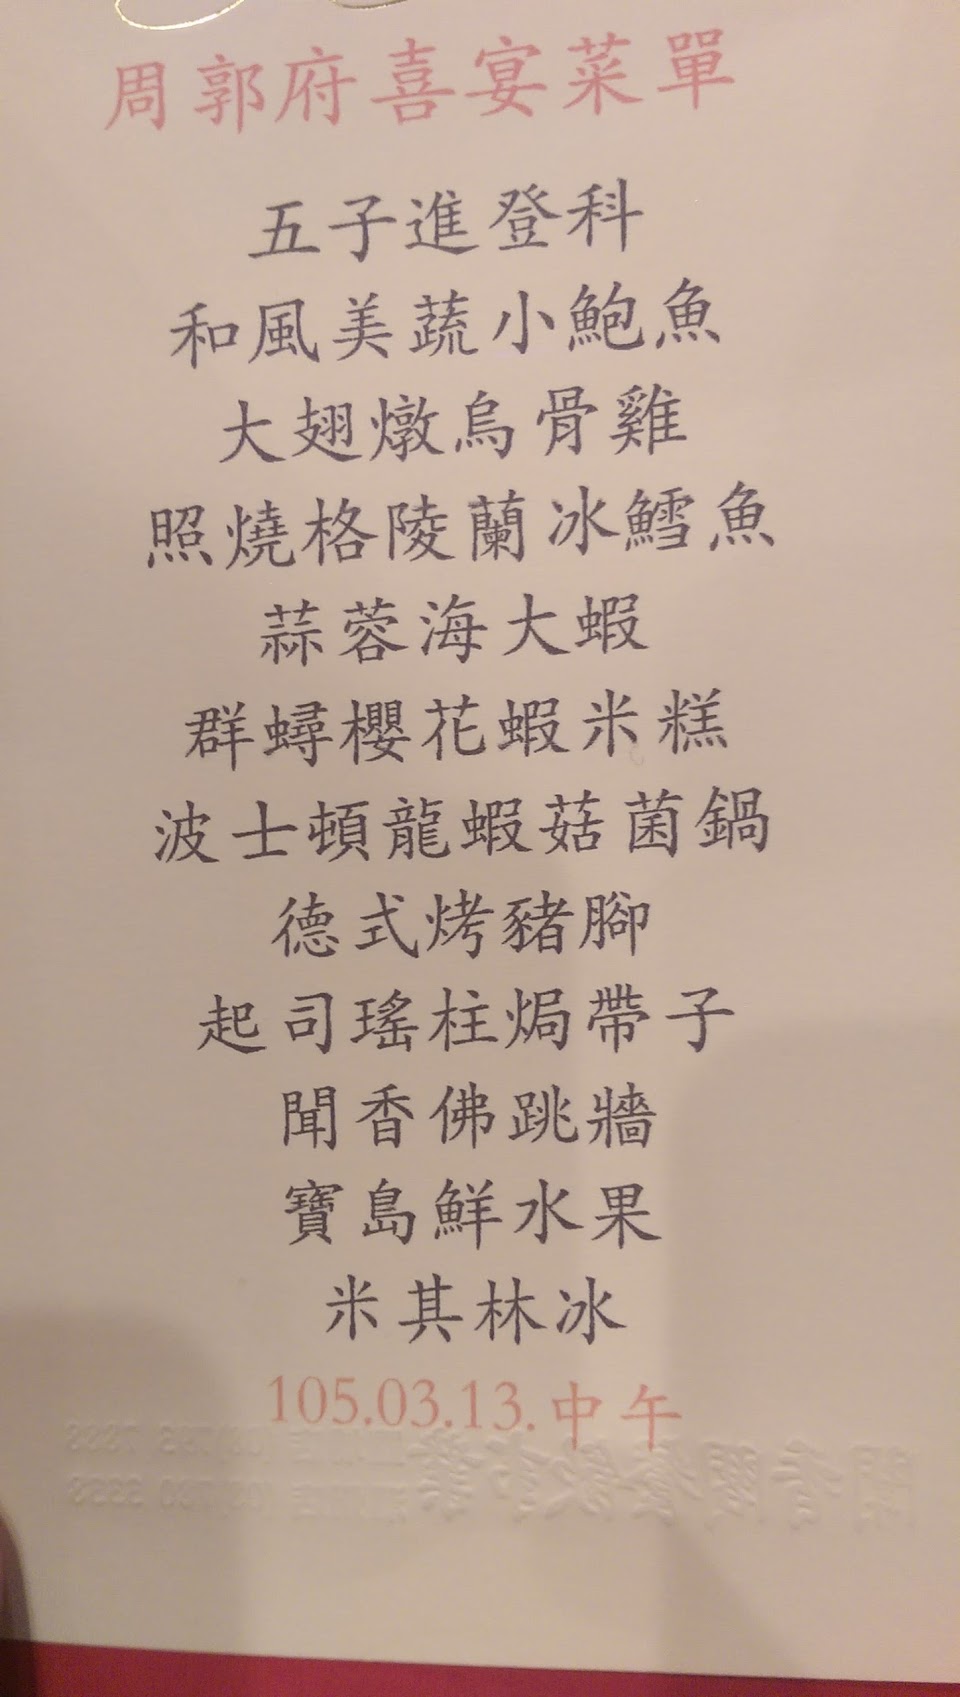 周郭府喜宴菜單
五子進登科
和風美蔬小鮑魚
大翅燉烏骨雞
照燒格陵蘭冰鱈魚
蒜蓉海大蝦
群蟳櫻花蝦米糕
波士頓龍蝦菇菌鍋
德式烤豬腳
起司瑤柱焗帶子
聞香佛跳牆
寶島鮮水果
米其林冰
105.03.13.中午